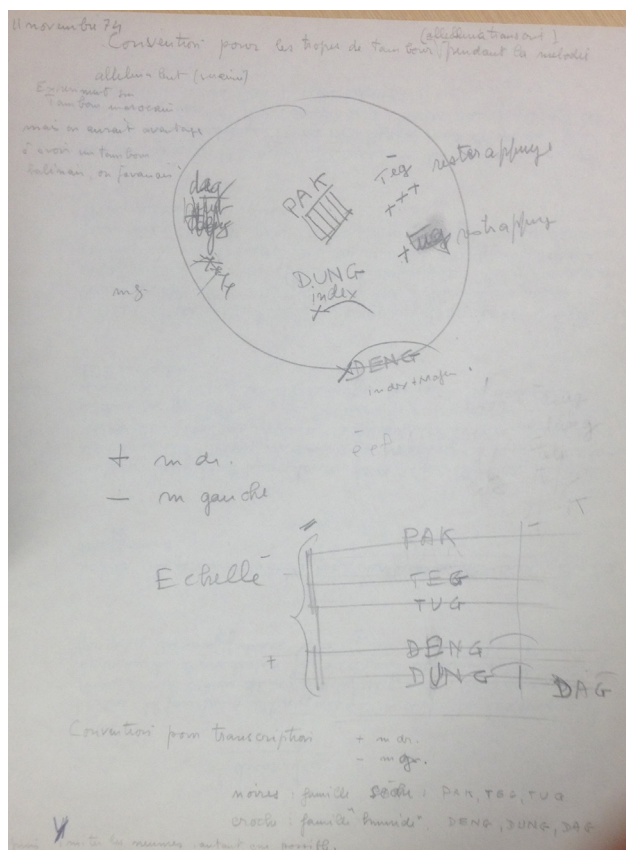 11 novembre 74
(alleluia transcrit)
Convention pour les tropes de tambour, pendant la mélodie
alleluia but (main)
tambour marocain
mais on aurait avantage
à avoir un tambour
balinais, ou javanais
dag
PAK
Tëg rester appuyé
+++
+ rest appuyé
DUNG
index
m g.
XDENG
index + moyen
+ m dr.
– m gauche
PAK
Echelle
TEG
TUG
+
DENG
DUNG
DAG
Convention pour transcription + m dr.
- m ga.
noires : famille sèche : PAK, TEG, TUG
croche : famille humide DENG, DUNG, DAG
les mesures autant que possible.